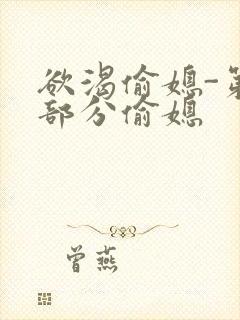 欲渴偷媳-第
部分偷媳
曾燕